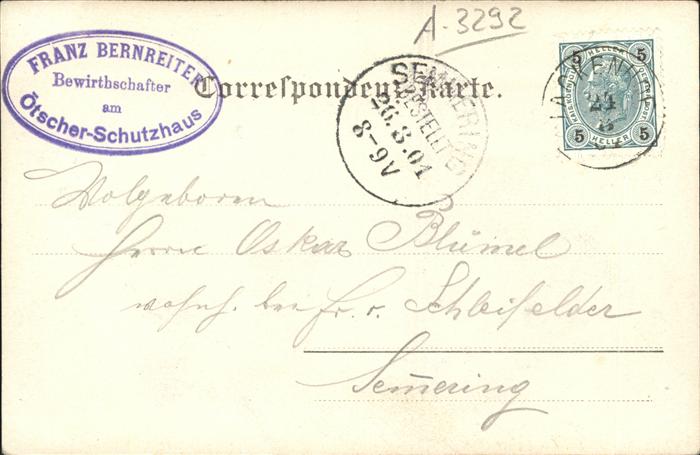 A-3292
FRANZ BERNREITER
Bewirthschafter
am
Ötscher-Schutzhaus
Correspondenz-Karte.
SEMMERING
BESTELLT
26.8.01
8-9V
5 HELLER 5
5 HELLER 5
LACKENH
24
8
Wolgeboren
Herrn Oskar Blümel
wohnh. bei Fr. v. Schleifelder
Sem̅ering